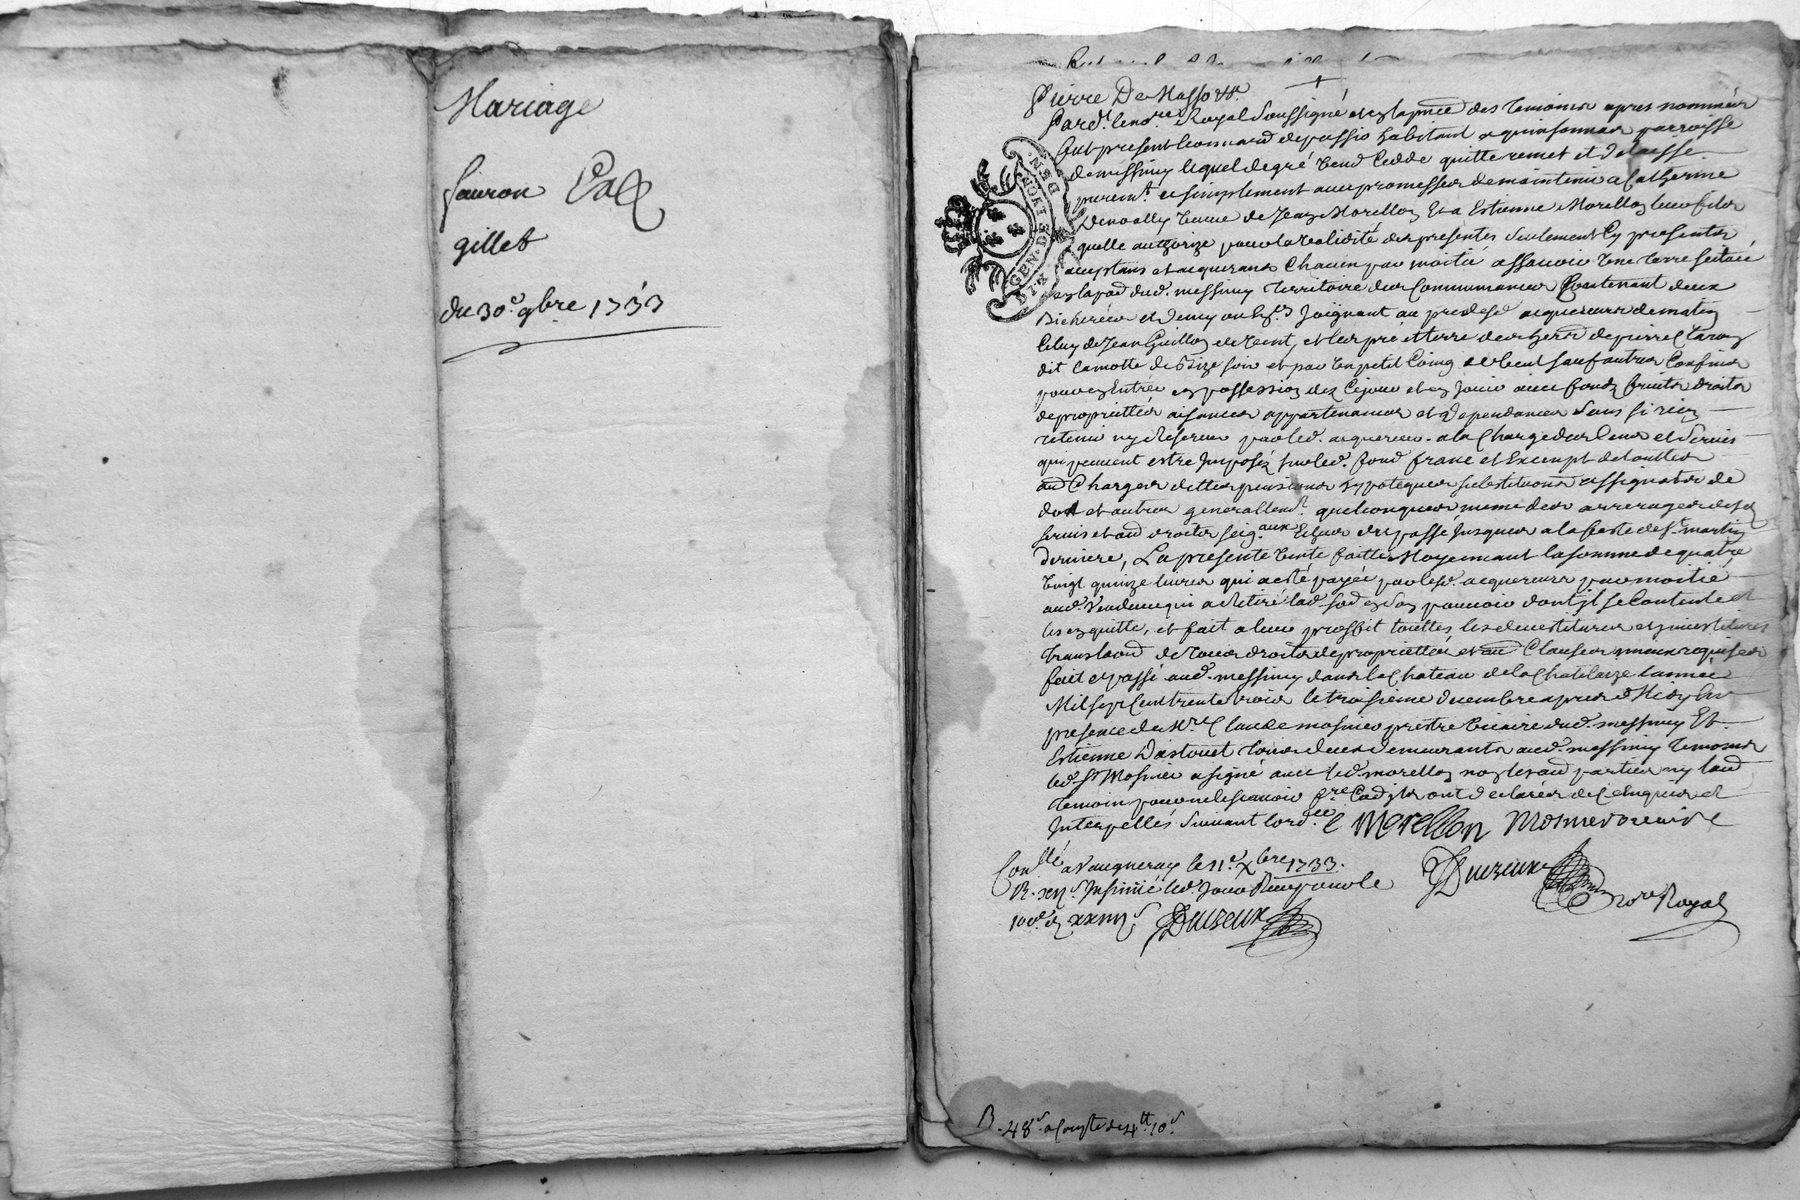 Mariage
fauron
gillet
du 30.e 9bre 1733
Pierre De Masso
Pard.t le no.re Royal soussigné et en la pñce des temoins apres nommés
fut present Leonnard depassio habitant a quinsonnas parroisse
de messimy lequel de gré vend cedde quitte remet et delaisse
purem.t et simplement avec promesse de maintenir a Catherine
Denoally veuve de Jean Morellon Et a Estienne Morellon leur fils
quelle authorize pour la validité des presentes seulement Cy presents
acceptans et acquerans Chacun par moitié assavoir Une terre scituée
en la par. dud. messimy territoire des Communances Contenant deux
Bicherées et demy Joignant au pred. acquereurs de matin
Celuy de Jean Guillon de vent, et les pré et terre des hers de pierre Claron
dit Lamotte de Bize soir et par un petit Coing de vent sauf autres Confins
pour en Entrée en possession dez Cejour et en Jouir avec fondz fruits droits
de proprietté aisances appartenances et dependances sans si rien
retenir ny Reserver par led. acquereur a la Charge des Cens et servis
qui peuvent estre Imposéz sur led. fond franc et Exempt de touttes
au Charges dettes pensions hypoteques substitutions assignatos de
dot et autres generallem.t quelconques meme des arrerages desd
servis et au droits seig.aux Echus du passé Jusques a la feste de St martin
derniere, La presente Vente faitte Moyennant la somme de quatre
Vingt quinze livres qui a esté payée par lesd. acquereurs par moitié
aud. Vendeur qui a Retiré lad. so.e en son pouvoir dont Jl se Contente et
les en quitte, et fait a leur proffit touttes les devestitures et investitures
translaõns de tous droits de proprietté et au Clauses requises
fait et passé aud. messimy dans le Chateau de la Chatelaize Lannée
Mil sept Cent trente trois le troisieme decembre apres Midy En
presence de Mre Claude mosnier prestre vicaire dud. messimy Et
Estienne Dastouet tous deux demeurants aud. messimy temoins
led. Sr Mosnier a signé avec led. morellon non les au parties ny laud
temoin pour ne le scavoir Jls ont declarés de Ce Enquis et
Interpellés suivant lord.ce Morellon Mosnier vicaire
Con.llé a Vaugneray le 11.e Xbre 1733.
R. Insinué led. Jour Receu pour le
100.e den xxiiij s Duzeux
Duzeux
no.re Royal
R. 48 s. a Compte de 4 lt 10 s